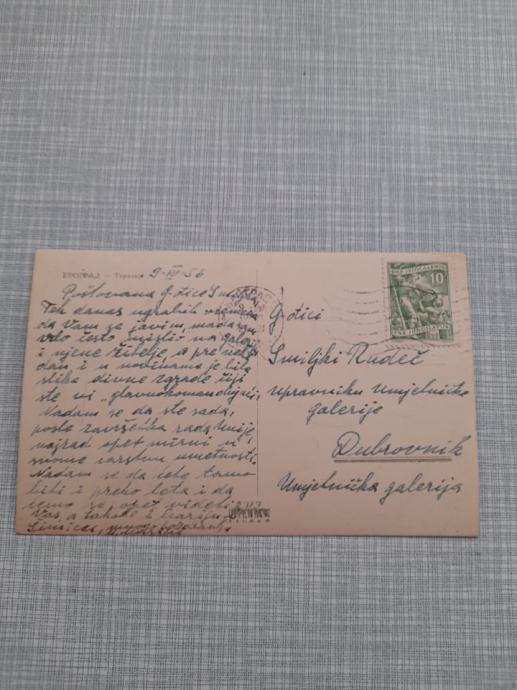 БЕОГРАД — Теразије 9-III-56
Poštovana G-đice
Tek danas ugrabih vremena
da Vam se javim, mada sam
vrlo često mislio na galeriju
i njene žitelje, a pre neki
dan i u novinama je bila
slika divne zgrade čiji
ste vi „glavnokomandujući".
Nadam se da ste sada,
posle završetka rada
najzad opet mirni u
svome carstvu umetnosti.
Nadam se da ćete tamo
biti i preko leta i da
ćemo se opet videti.
Vas, a takođe i Mariju
G-đici
Smiljki Rudeč
upravniku Umjetničke
galerije
Dubrovnik
Umjetnička galerija
10